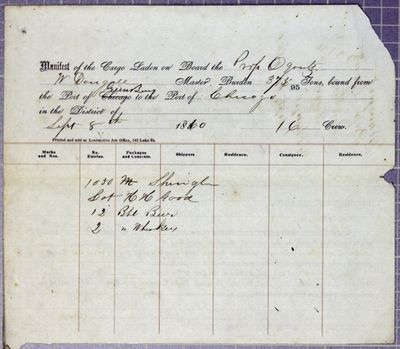 Manifest of the Cargo Laden on Board the Prop Ogontz
W Dougall Master Burden 375 95 Tons, bound from
Green Bay
the Port of Chicago to the Port of Chicago
in the District of
Sept 8th 1860 16 Crew.
Printed and sold at Locomotive Job Office, 143 Lake St.
Marks and Nos. No. Entries. Packages and Contents. Shippers. Residence. Consignee. Residence.
1030 M Shingle
Lot H H Good
12 Bbl Beer
2 " Whiskey